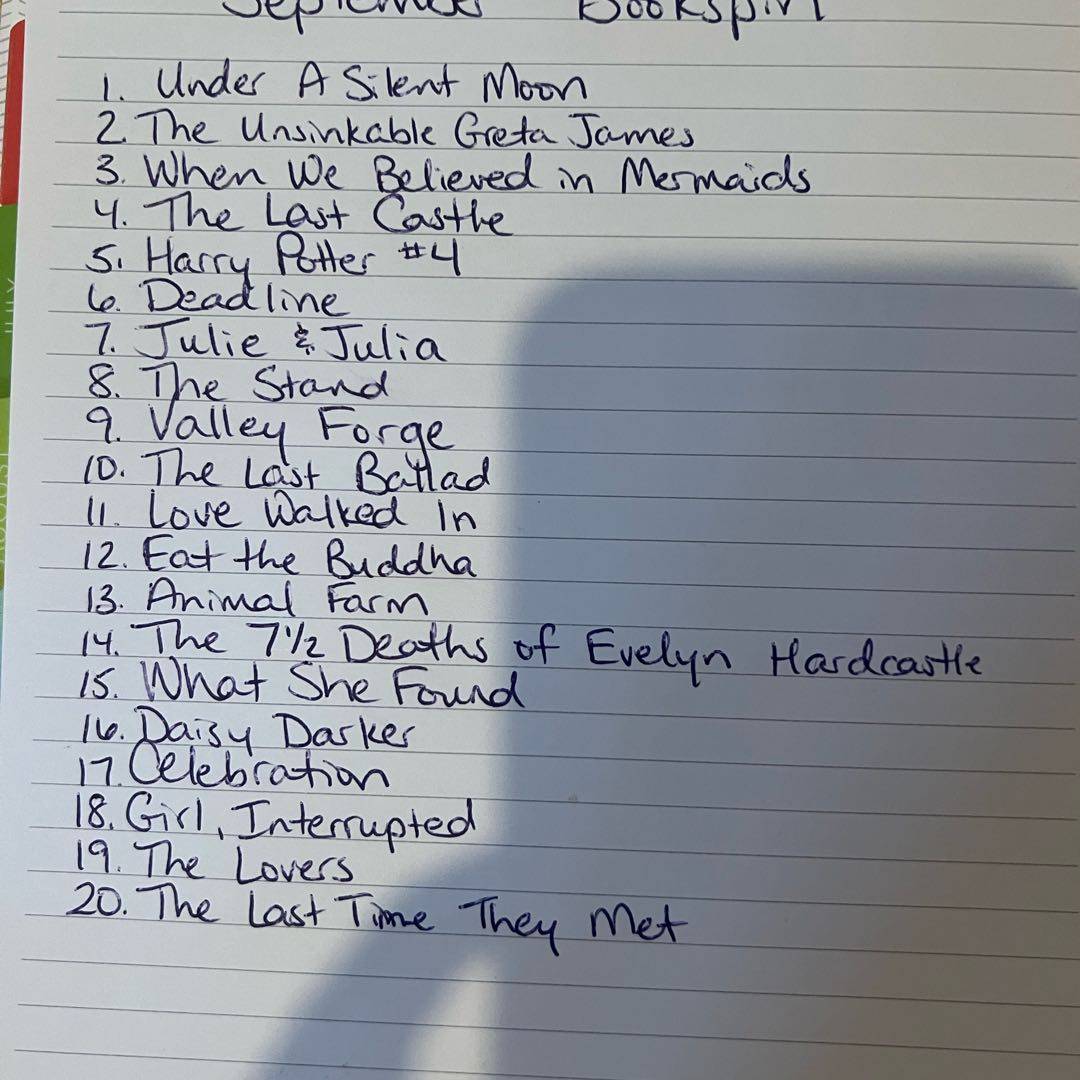 September Bookspin
1. Under A Silent Moon
2. The Unsinkable Greta James
3. When We Believed in Mermaids
4. The Last Castle
5. Harry Potter #4
6. Deadline
7. Julie & Julia
8. The Stand
9. Valley Forge
10. The Last Ballad
11. Love Walked In
12. Eat the Buddha
13. Animal Farm
14. The 7 1/2 Deaths of Evelyn Hardcastle
15. What She Found
16. Daisy Darker
17. Celebration
18. Girl, Interrupted
19. The Lovers
20. The Last Time They Met